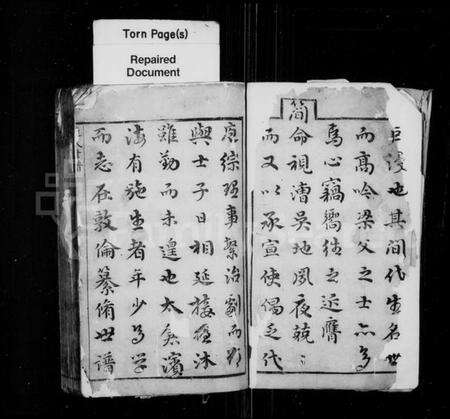 Torn Page(s)
Repaired
Document
臣淺也其間代生名世
而高吟梁父之士亦為
焉心竊嚮往之近膺
簡命視漕吳地夙夜兢〻
而又以承宣使偈乏代
庖綜理事繁治劇而
與士子日相延接櫛沐
雖勤而未遑也太倉濱
海有施生者年少為學
而志存敦倫纂脩世譜